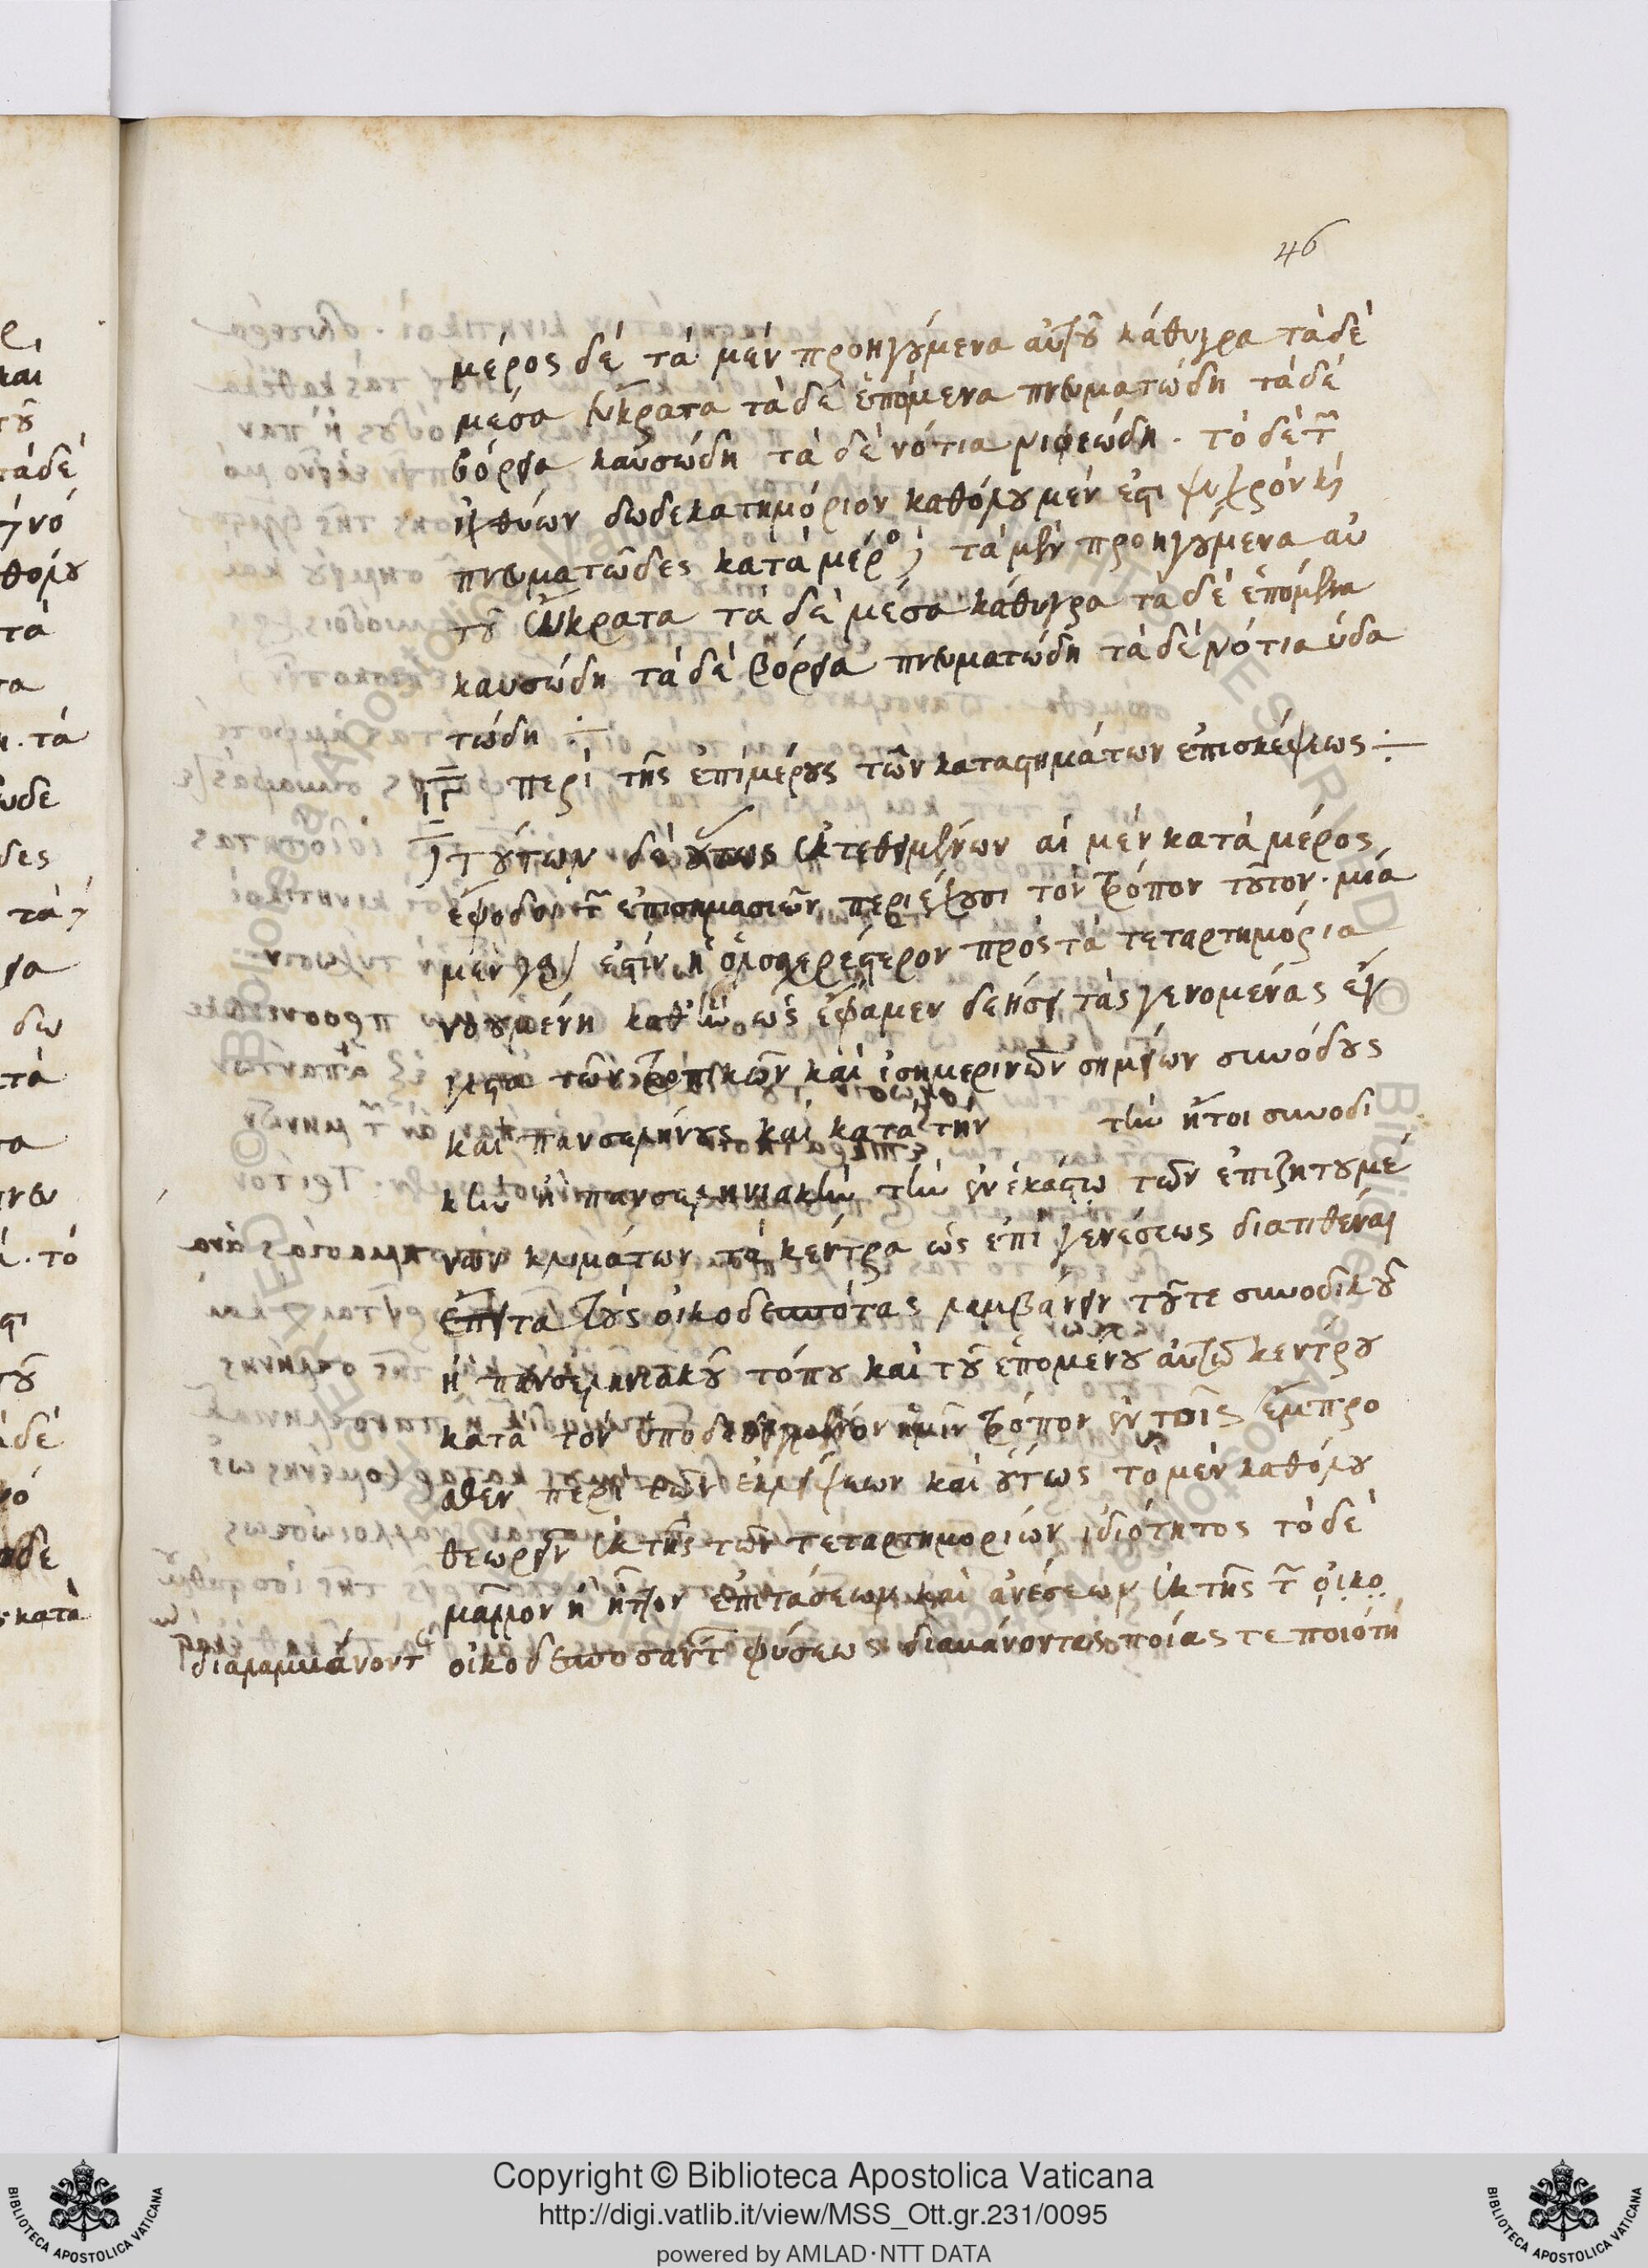 46
μέρος δὲ τὰ μὲν προηγούμενα αὐτοῦ κάθυγρα τὰ δὲ
μέσα εὔκρατα τὰ δὲ ἑπόμενα πνευματώδη τὰ δὲ
βόρεια καυσώδη τὰ δὲ νότια νιφεώδη. τὸ δὲ τ̃
ἰχθύων δωδεκατημόριον καθόλου μέν ἐστι ψυχρὸν κὴ
πνευματῶδες κατὰ μέρο τὰ μὲν προηγούμενα αὐ
τοῦ εὔκρατα τὰ δὲ μέσα κάθυγρα τὰ δὲ ἑπόμενα
καυσώδη τὰ δὲ βόρεια πνευματώδη τὰ δὲ νότια ὑδα
τώδη
ιγ περὶ τῆς ἐπὶ μέρους τῶν καταστημάτων ἐπισκέψεως
τούτων δὲ οὕτως ἐκτεθειμένων αἱ μὲν κατὰ μέρος
ἔφοδοι τ̃ ἐπισημασιῶν περιέχουσι τὸν τρόπον τοῦτον. μία
μὲν γάρ ἐστιν ἡ ὁλοσχερέστερον πρὸς τὰ τεταρτημόρια
νοουμένη καθ' ἣν ὡς ἔφαμεν δεήσει τὰς γενομένας ἔγ
γιστα τῶν τροπικῶν καὶ ἰσημερινῶν σημείων συνόδους
καὶ πανσελήνους καὶ κατὰ τὴν τὴν ἤτοι συνοδι
κὴν ἢ πανσεληνιακὴν τὴν ἐν ἑκάστῳ τῶν ἐπιζητουμέ
νων κλιμάτων τὰ κέντρα ὡς ἐπὶ γενέσεως διατιθέναι
ἔπειτα τοὺς οἰκοδεσπότας λαμβάνειν τοῦ τε συνοδικοῦ
ἢ πανσεληνιακοῦ τόπου καὶ τοῦ ἑπομένου αὐτῷ κέντρου
κατὰ τὸν ὑποδεδειγμένον ἡμῖν τρόπον ἐν τοῖς ἔμπρο
σθεν περὶ τῶν ἐκλείψεων καὶ οὕτως τὸ μὲν καθόλου
θεωρεῖν ἐκ τῆς τῶν τεταρτημορίων ἰδιότητος τὸ δὲ
μᾶλλον ἢ ἧττον ἐπιτάσεων καὶ ἀνέσεων ἐκ τῆς τ̃ οἰκο
διαλαμμάνοντ οἰκοδεσποσαντ φύσεως διαμάνοντας ποίας τε ποιότη
Copyright © Biblioteca Apostolica Vaticana
http://digi.vatlib.it/view/MSS_Ott.gr.231/0095
powered by AMLAD·NTT DATA
BIBLIOTECA APOSTOLICA VATICANA
BIBLIOTECA APOSTOLICA VATICANA